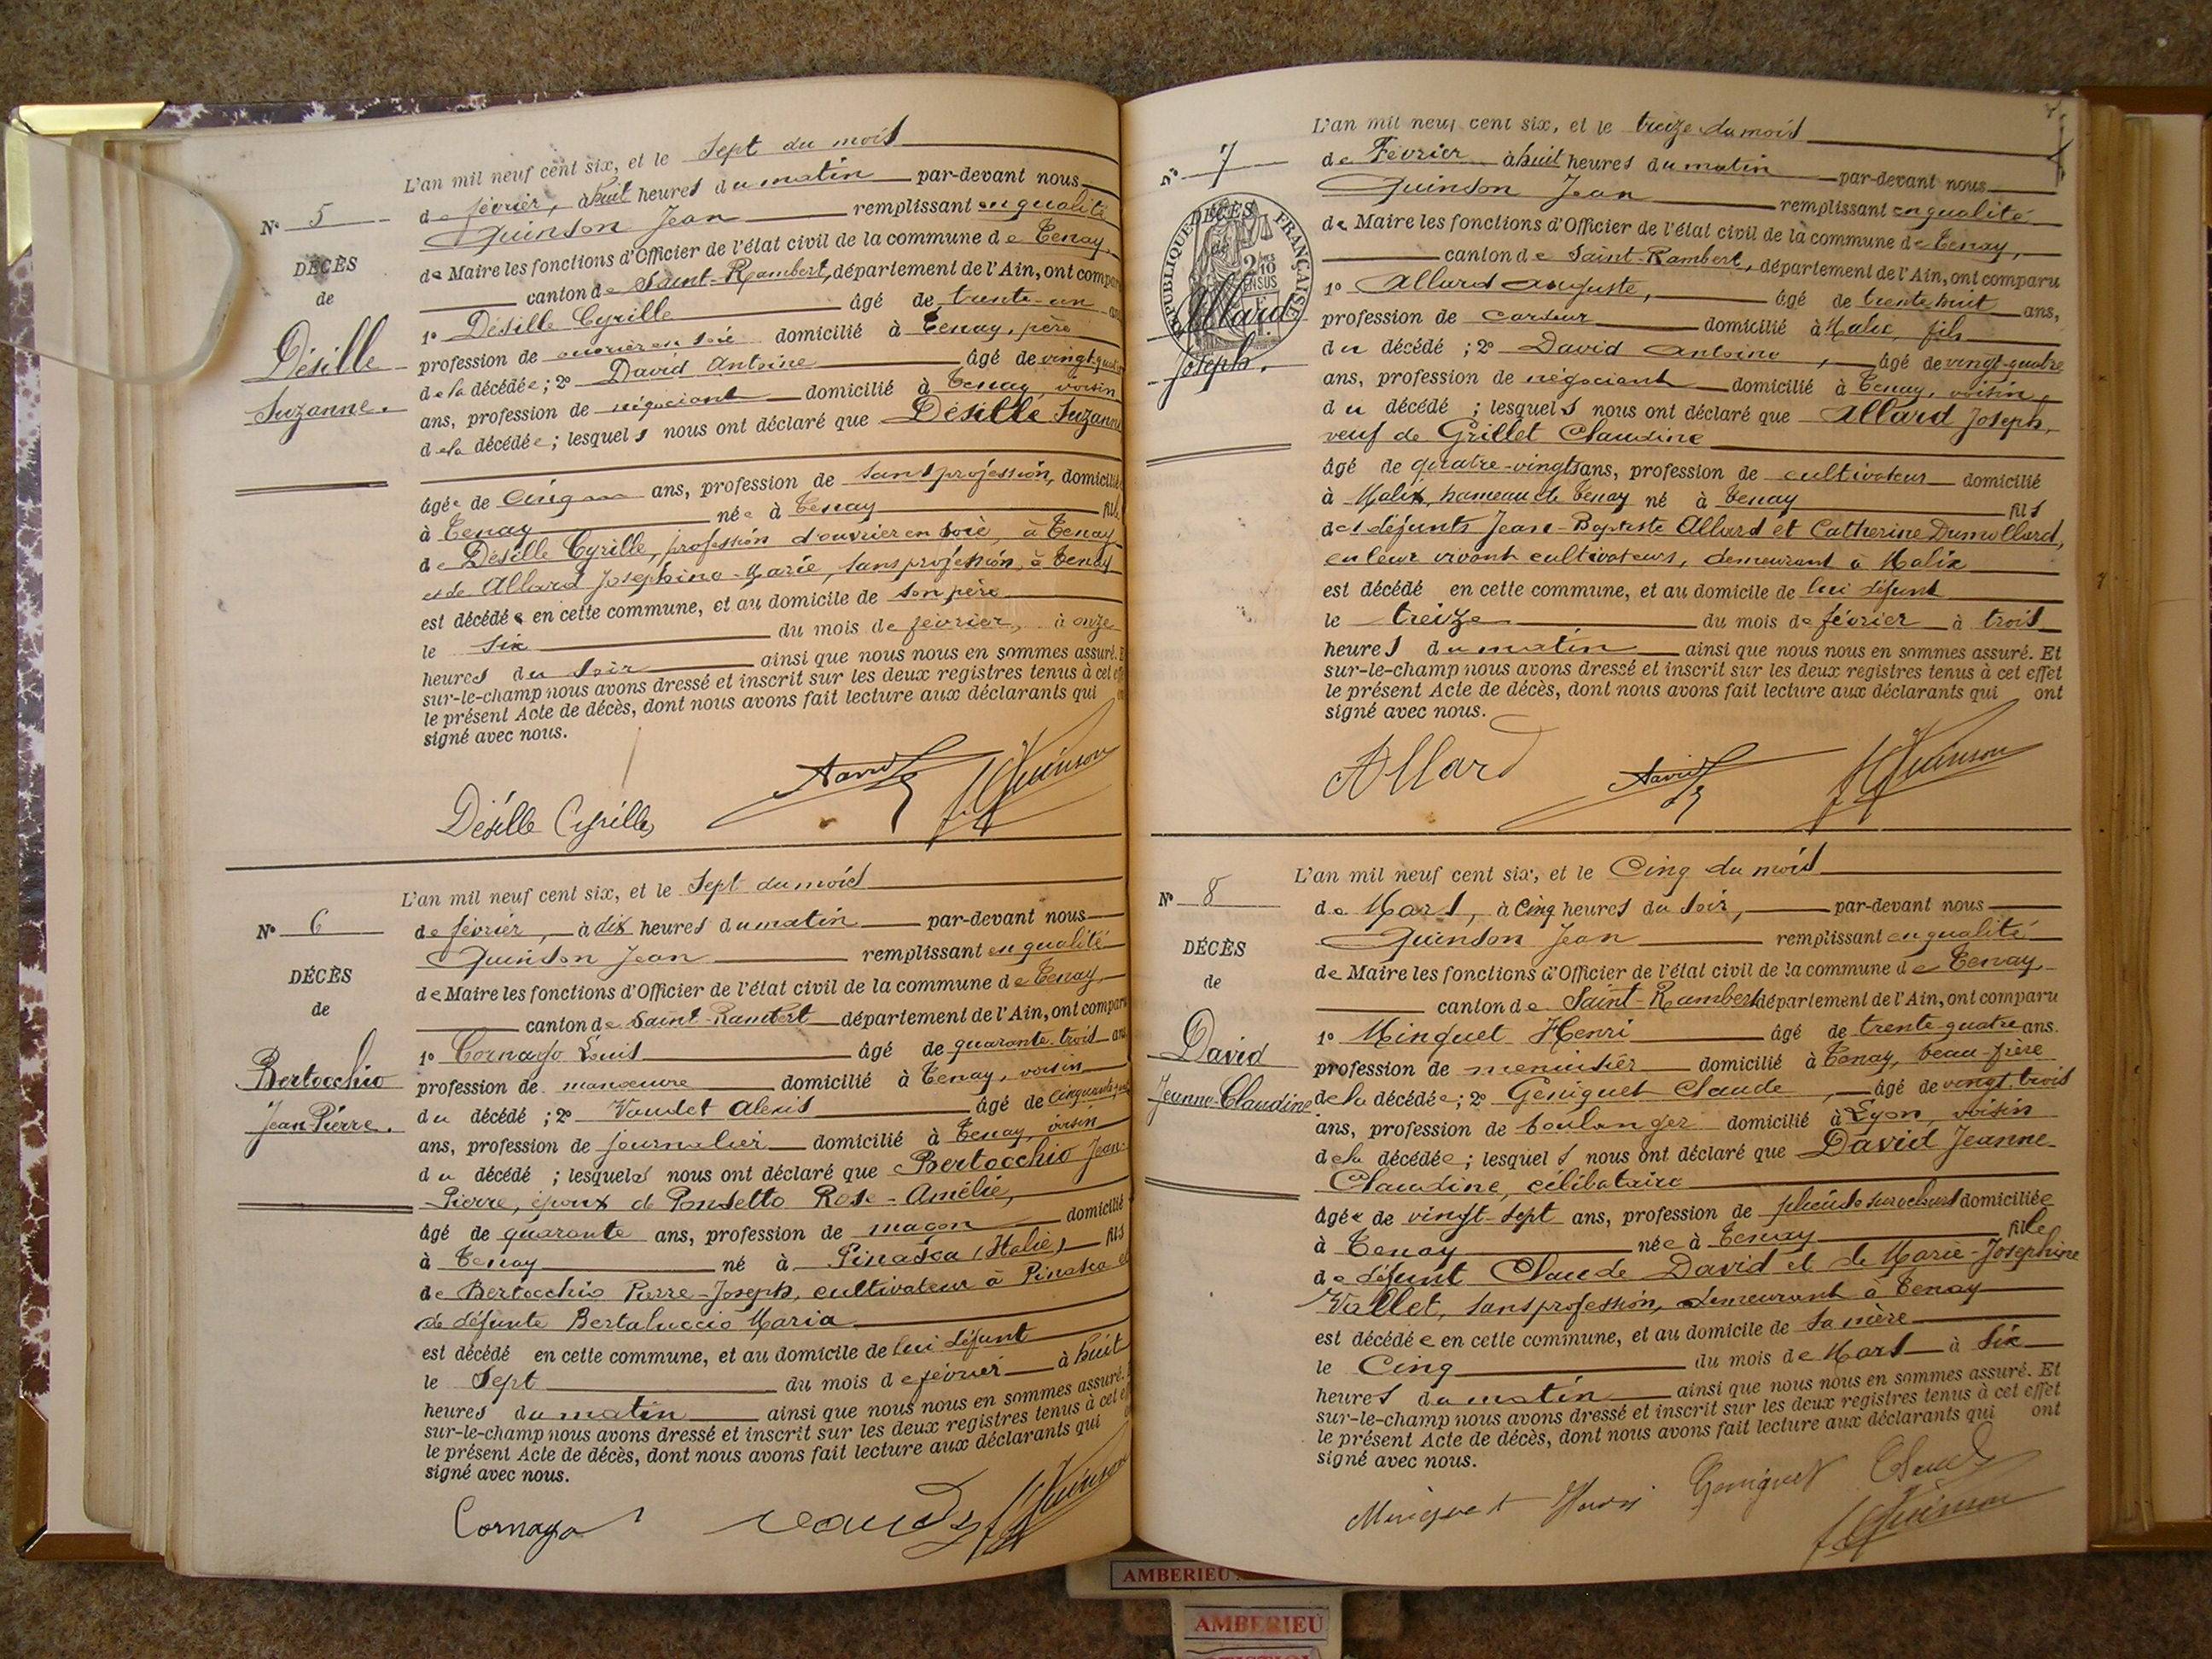 L'an mil neuf cent six, et le Sept du mois
de février, à huit heures du matin par-devant nous
Quinson Jean remplissant en qualité
de Maire les fonctions d'Officier de l'état civil de la commune de Tenay,
canton de Saint-Rambert, département de l'Ain, ont compar
1º Désille Cyrille âgé de trente-un an
profession de ouvrier en soie domicilié à Tenay, père
de la décédée ; 2º David Antoine âgé de vingt-quatre
ans, profession de négociant domicilié à Tenay, voisin
de la décédée ; lesquels nous ont déclaré que Désille Suzanne
âgée de Cinq ans, profession de sans profession, domicilié
à Tenay née à Tenay fille
de Désille Cyrille, profession d'ouvrier en soie, à Tenay
et de Allard Josephine-Marie, sans profession, à Tenay
est décédée en cette commune, et au domicile de son père
le six du mois de février, à onze
heures du soir ainsi que nous nous en sommes assuré. E
sur-le-champ nous avons dressé et inscrit sur les deux registres tenus à cet eff
le présent Acte de décès, dont nous avons fait lecture aux déclarants qui on
signé avec nous.
Nº 5
DÉCÈS
de
Désille
Suzanne.
Désille Cyrille David J Quinson
L'an mil neuf cent six, et le Sept du mois
de février, à dix heures du matin par-devant nous
Quinson Jean remplissant en qualité
de Maire les fonctions d'Officier de l'état civil de la commune de Tenay,
canton de Saint-Rambert département de l'Ain, ont comparu
1º Cornago Louis âgé de quarante-trois ans
profession de manœuvre domicilié à Tenay, voisin
du décédé ; 2º Vaudet Alexis âgé de
ans, profession de journalier domicilié à Tenay, voisin
du décédé ; lesquels nous ont déclaré que Bertocchio Jean-
Pierre, époux de Ponsetto Rose-Amélie,
âgé de quarante ans, profession de maçon domicilié
à Tenay né à Pinasca (Italie) fils
de Bertocchio Pierre-Joseph, cultivateur à Pinasca et
de défunte Bertaluccio Maria
est décédé en cette commune, et au domicile de lui défunt
le Sept du mois de février à huit
heures du matin ainsi que nous nous en sommes assuré.
sur-le-champ nous avons dressé et inscrit sur les deux registres tenus à cet e
le présent Acte de décès, dont nous avons fait lecture aux déclarants qui
signé avec nous.
Nº 6
DÉCÈS
de
Bertocchio
Jean-Pierre.
Cornago J Quinson
L'an mil neuf cent six, et le treize du mois
de Février à huit heures du matin par-devant nous
Quinson Jean remplissant en qualité
de Maire les fonctions d'Officier de l'état civil de la commune de Tenay,
canton de Saint-Rambert, département de l'Ain, ont comparu
1º Allard Auguste, âgé de trente huit ans,
profession de cardeur domicilié à Malix, fils
du décédé ; 2º David Antoine, âgé de vingt-quatre
ans, profession de négociant domicilié à Tenay, voisin,
du décédé ; lesquels nous ont déclaré que Allard Joseph,
veuf de Grillet Claudine
âgé de quatre-vingts ans, profession de cultivateur domicilié
à Malix, hameau de Tenay né à Tenay fils
des défunts Jean-Baptiste Allard et Catherine Dumollard,
en leur vivant cultivateurs, demeurant à Malix
est décédé en cette commune, et au domicile de lui défunt
le treize du mois de février à trois
heures du matin ainsi que nous nous en sommes assuré. Et
sur-le-champ nous avons dressé et inscrit sur les deux registres tenus à cet effet
le présent Acte de décès, dont nous avons fait lecture aux déclarants qui ont
signé avec nous.
Nº 7
DÉCÈS
de
RÉPUBLIQUE FRANÇAISE
Allard
Joseph.
Allard David J Quinson
L'an mil neuf cent six, et le Cinq du mois
de Mars, à Cinq heures du soir, par-devant nous
Quinson Jean remplissant en qualité
de Maire les fonctions d'Officier de l'état civil de la commune de Tenay,
canton de Saint-Rambert département de l'Ain, ont comparu
1º Minguet Henri âgé de trente-quatre ans.
profession de menuisier domicilié à Tenay, beau-frère
de la décédée ; 2º Geniguet Claude, âgé de vingt-trois
ans, profession de boulanger domicilié à Lyon, voisin
de la décédée ; lesquels nous ont déclaré que David Jeanne-
Claudine, célibataire
âgée de vingt-sept ans, profession de domiciliée
à Tenay née à Tenay fille
de défunt Claude David et de Marie-Josephine
Vallet, sans profession, demeurant à Tenay
est décédée en cette commune, et au domicile de sa mère
le Cinq du mois de Mars à six
heures du matin ainsi que nous nous en sommes assuré. Et
sur-le-champ nous avons dressé et inscrit sur les deux registres tenus à cet effet
le présent Acte de décès, dont nous avons fait lecture aux déclarants qui ont
signé avec nous.
Nº 8
DÉCÈS
de
David
Jeanne-Claudine
Minguet Henri Geniguet Claude
J Quinson
AMBERIEU
AMBERIEU